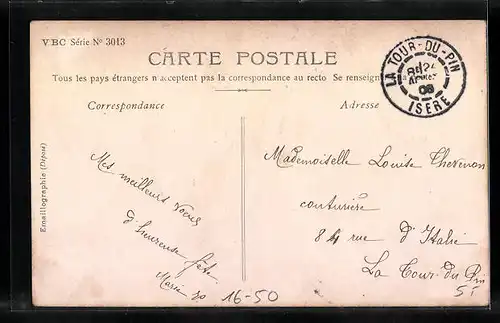 VBC Série Nº 3013
CARTE POSTALE
Tous les pays étrangers n'acceptent pas la correspondance au recto Se renseigner à la
Correspondance
Adresse
Emaillographie (Déposé)
LA TOUR-DU-PIN
08
ISÈRE
Mes meilleurs vœux
d'heureuse fête
Marie
16-50
Mademoiselle Louise Thevenon
couturière
84 rue d'Italie
La Tour du Pin